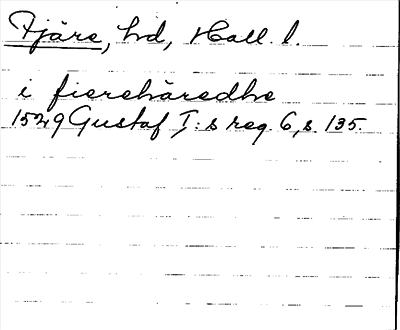 Fjäre, hd, Hall. l.
i fierehäredhe
1529 Gustaf I:s reg. 6, s. 135.